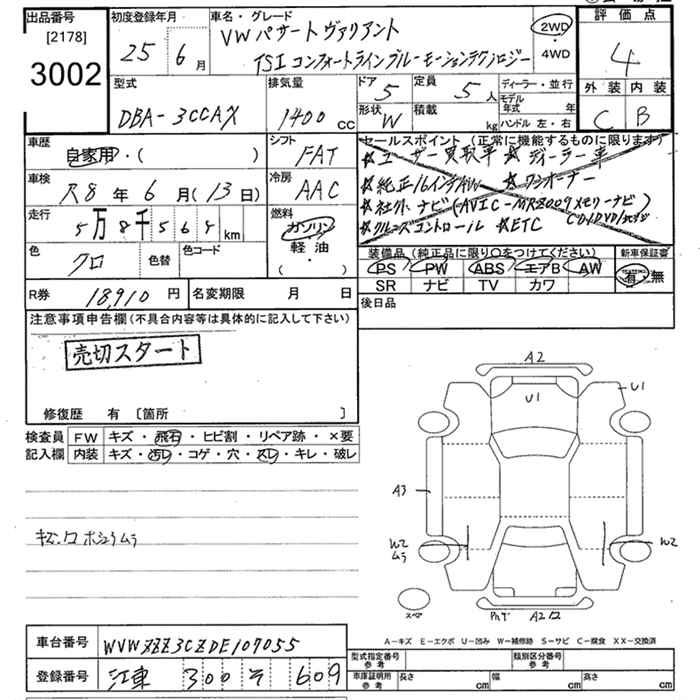 出品番号 [2178] 3002
初度登録年月 25 6月
車名・グレード
VW パサート ヴァリアント
TSI コンフォートライン ブルーモーションテクノロジー
2WD・4WD
評価点 4
外装 C 内装 B
型式 DBA-3CCAX
排気量 1400 cc
ドア 5
定員 5人
形状 W
積載 kg
ディーラー・並行
モデル年式 年
ハンドル 左・右
車歴 自家用・( )
シフト FAT
車検 R8年6月(13日)
冷房 AAC
走行 5万8千564 km
燃料 ガソリン・軽油・( )
色 クロ
色替
色コード
R券 18,910円
名変期限 月 日
セールスポイント(正常に機能するものに限ります)
☆ユーザー買取車 ☆ディーラー車
☆純正16インチAW ☆ワンオーナー
☆社外ナビ(AVIC-MRZ009メモリーナビ)
☆クルーズコントロール ☆ETC
装備品(純正品に限り○をつけてください)
新車保証書
PS PW ABS エアB AW
有・無
SR ナビ TV カワ
後日品
注意事項申告欄(不具合内容等は具体的に記入して下さい)
売切スタート
修復歴 有 〔箇所 〕
検査員記入欄
FW キズ・飛石・ヒビ割・リペア跡・×要
内装 キズ・汚レ・コゲ・穴・スレ・キレ・破レ
キズ・クロ ホシュウムラ
A2
U1
U1
A3
W2
ムラ
W2
スペア
A2
A-キズ E-エクボ U-凹み W-補修跡 S-サビ C-腐食 XX-交換済
車台番号 WVWZZZ3CZDE107055
登録番号 江東 300 そ 609
型式指定番号 参考
類別区分番号 参考
車庫証明用 参考 長さ cm 幅 cm 高さ cm